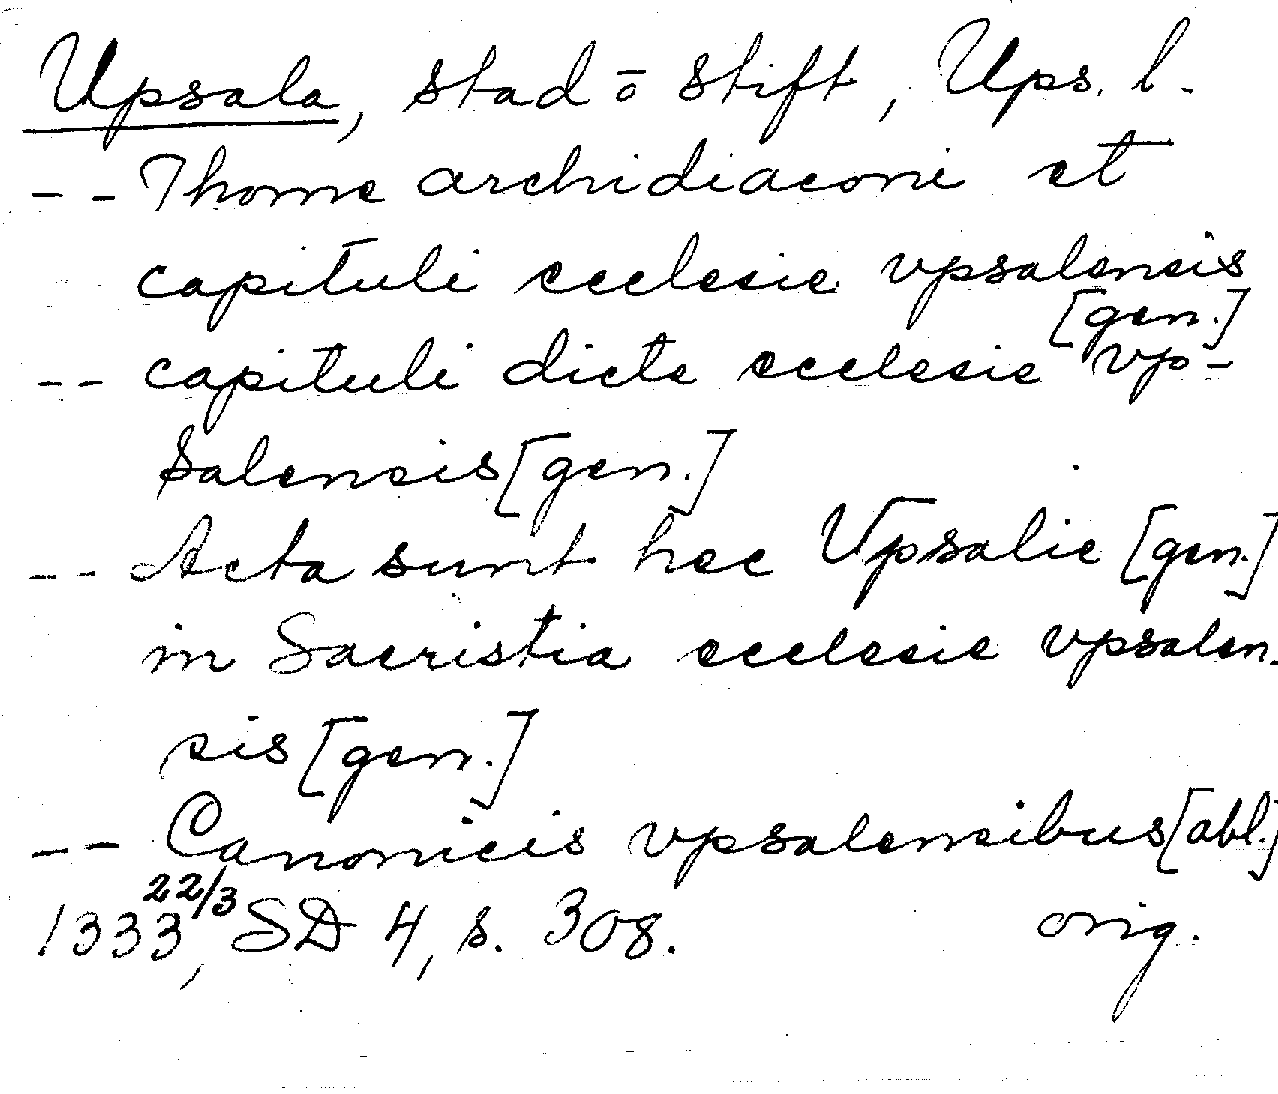 Upsala, stad o stift, Ups. l.
-- Thome archidiaconi et
capituli ecclesie vpsalensis
[gen.]
-- capituli dicte ecclesie vp-
salensis [gen.]
-- Acta sunt hec Vpsalie [gen.]
in Sacristia ecclesie vpsalen-
sis [gen.]
-- Canonicis vpsalensibus [abl.]
1333 22/3, SD 4, s. 308. orig.